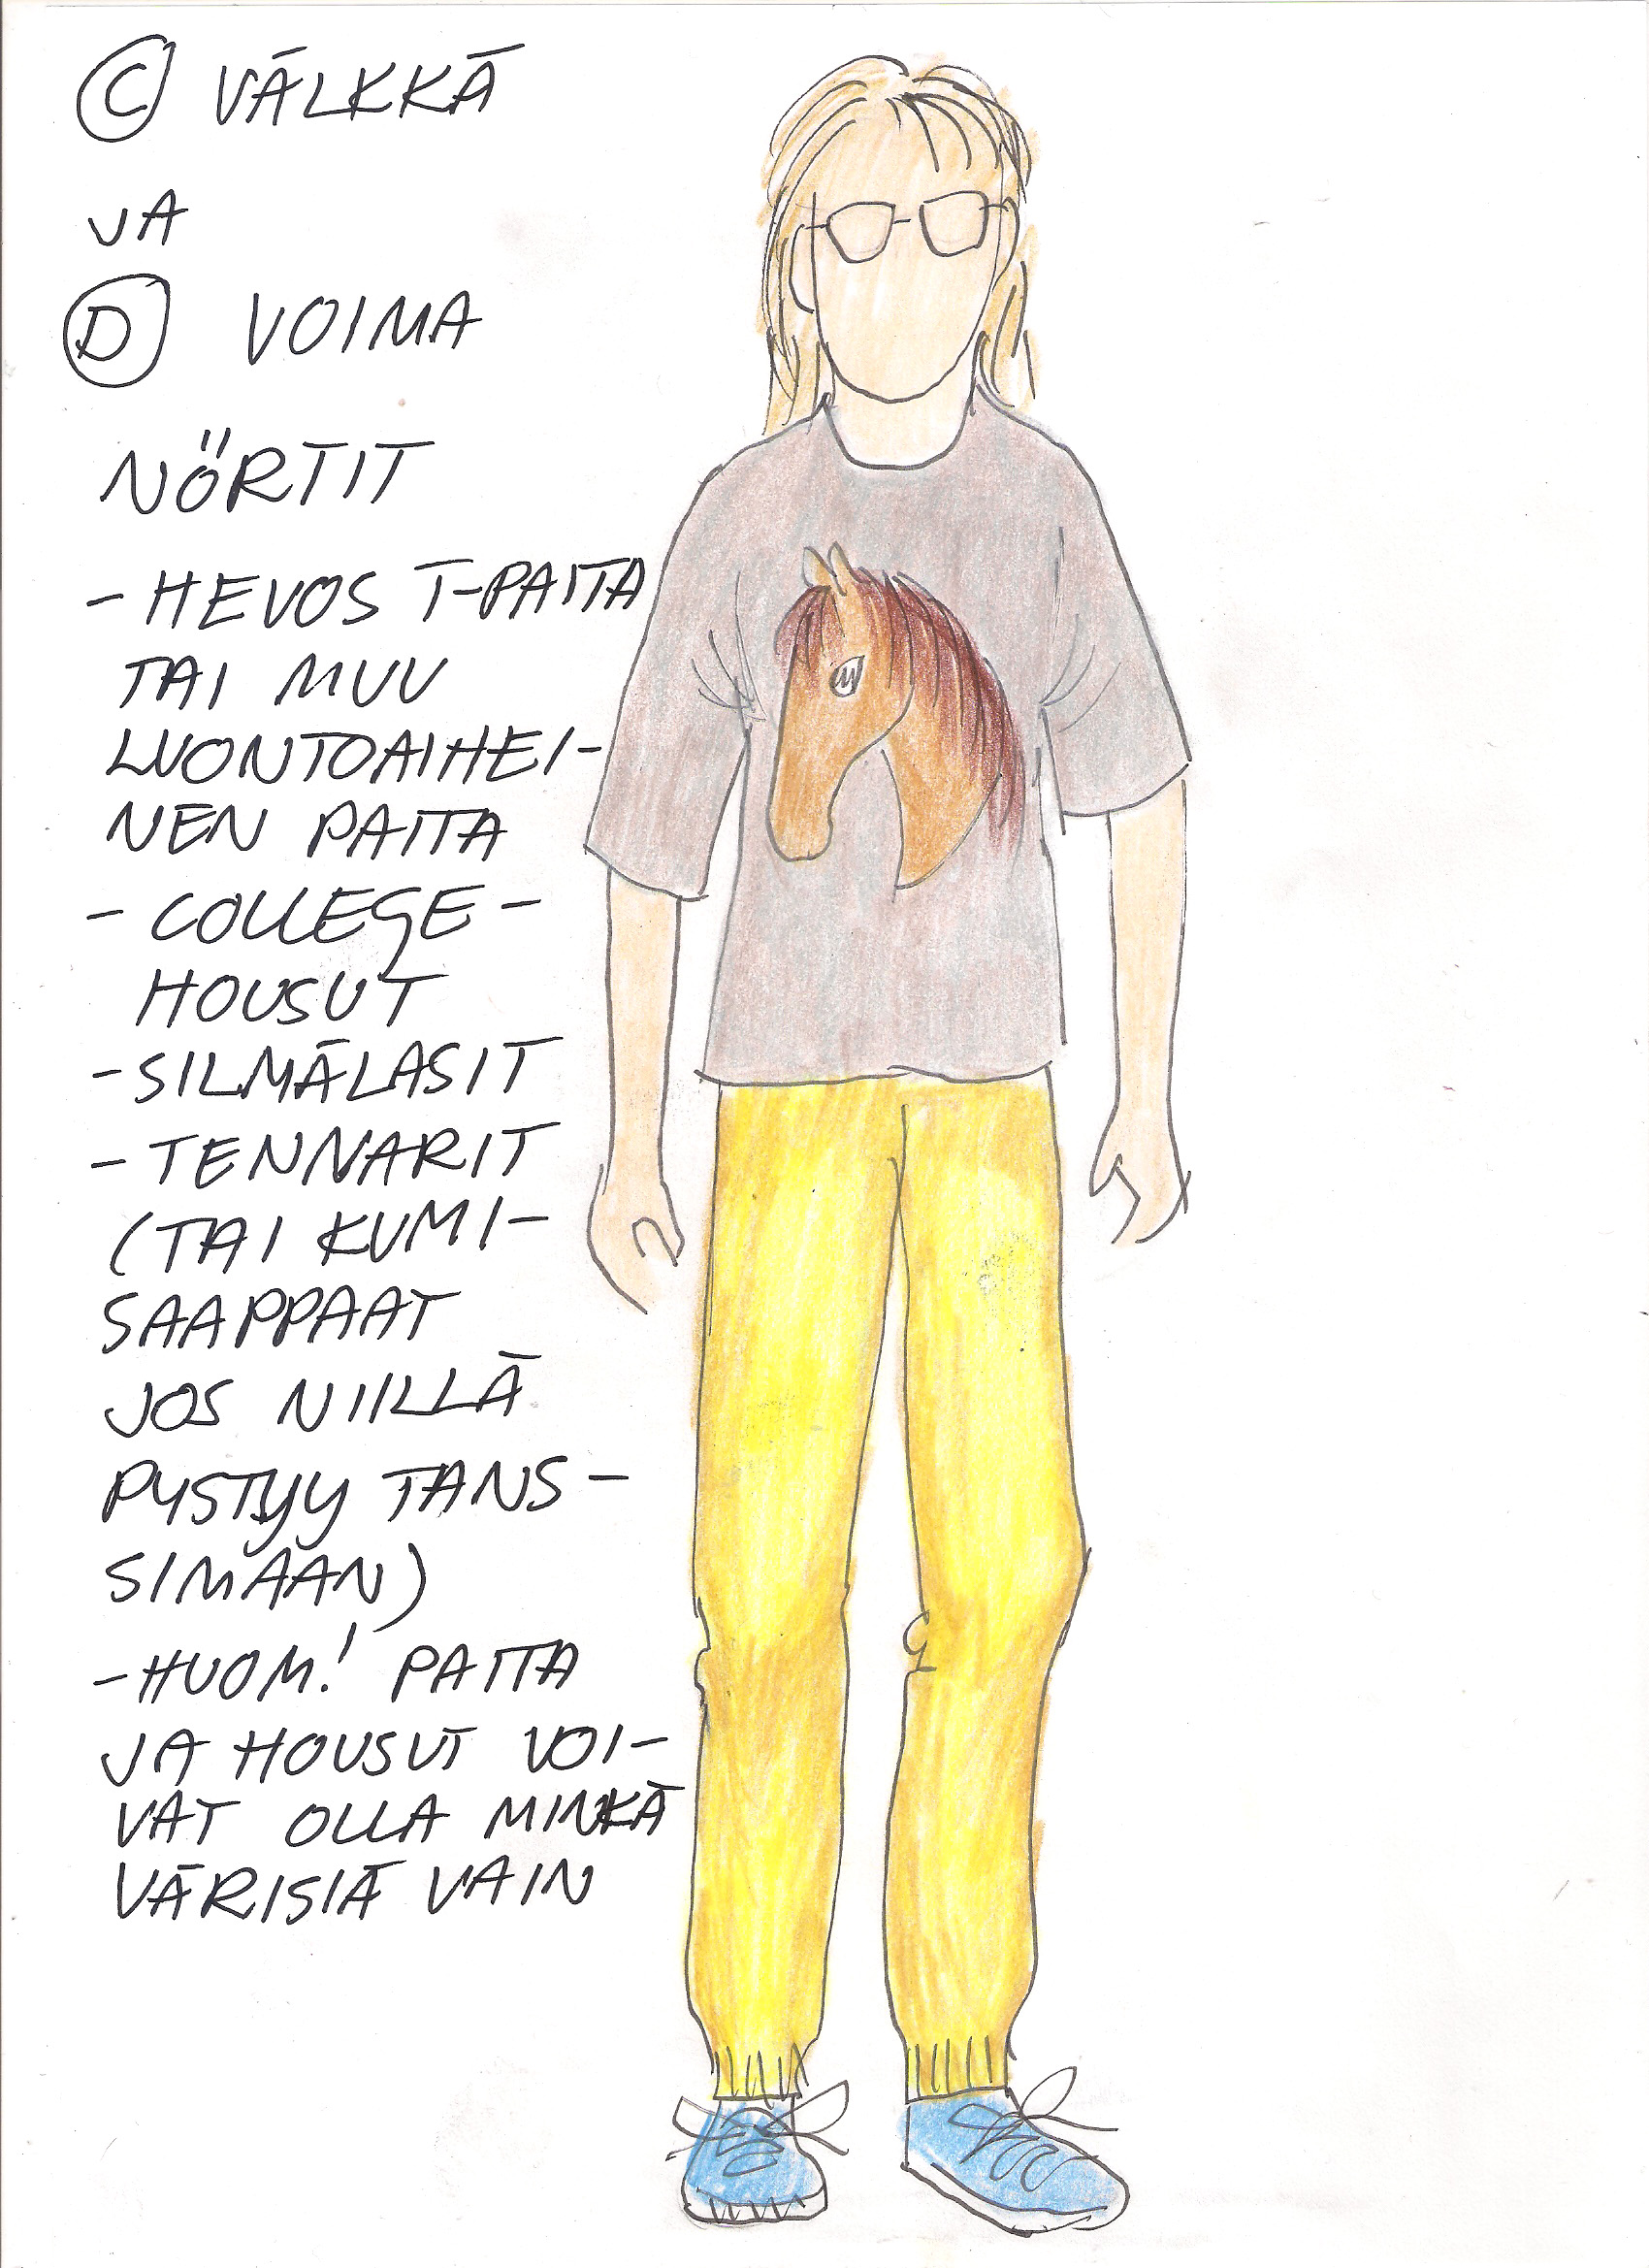 Ⓒ VÄLKKÄ
JA
Ⓓ VOIMA
NÖRTIT
- HEVOS T-PAITA
TAI MUU
LUONTOAIHEI-
NEN PAITA
- COLLEGE-
HOUSUT
- SILMÄLASIT
- TENNARIT
(TAI KUMI-
SAAPPAAT
JOS NIILLÄ
PYSTYY TANS-
SIMAAN)
- HUOM! PAITA
JA HOUSUT VOI-
VAT OLLA MINKÄ
VÄRISIÄ VAIN